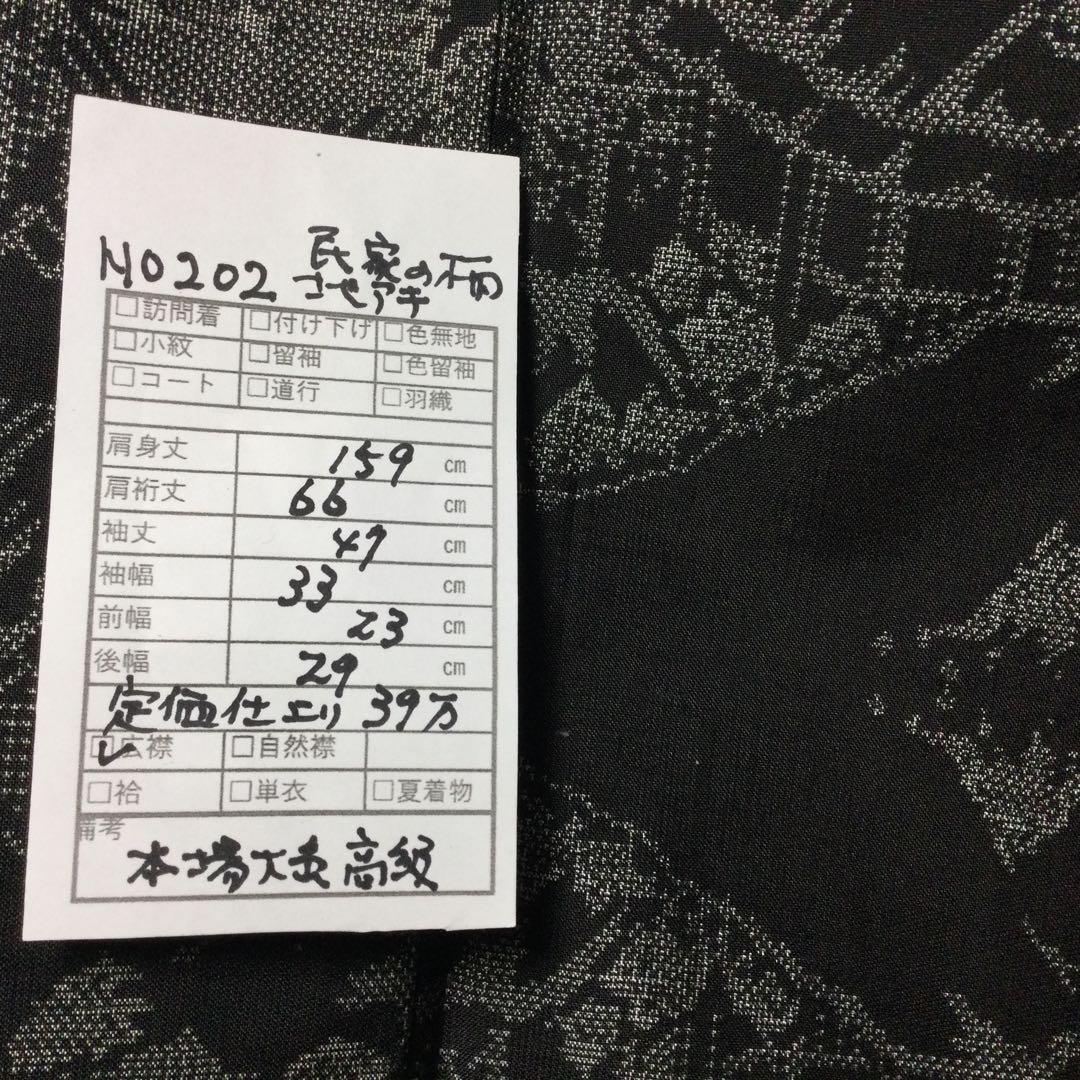 NO202 民家の柄
□訪問着 □付け下げ □色無地
□小紋 □留袖 □色留袖
□コート □道行 □羽織
肩身丈 159 cm
肩裄丈 66 cm
袖丈 49 cm
袖幅 33 cm
前幅 23 cm
後幅 29 cm
定価仕エリ 39万
☑広襟 □自然襟
□袷 □単衣 □夏着物
備考
本場大島 高級